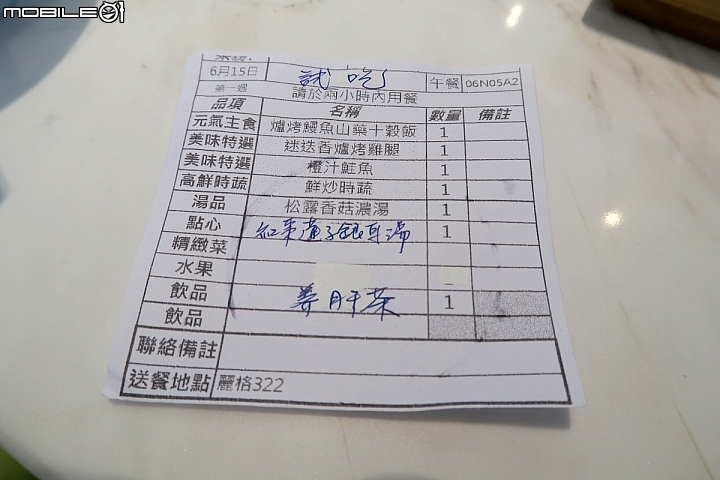 MOBILE01
6月15日 試吃 午餐 06N05A2
第一週 請於兩小時內用餐
品項 名稱 數量 備註
元氣主食 爐烤鰻魚山藥十穀飯 1
美味特選 迷迭香爐烤雞腿 1
美味特選 橙汁鮭魚 1
高鮮時蔬 鮮炒時蔬 1
湯品 松露香菇濃湯 1
點心 紅棗蓮子銀耳湯 1
精緻菜
水果
飲品 養肝茶 1
飲品
聯絡備註
送餐地點 麗格322